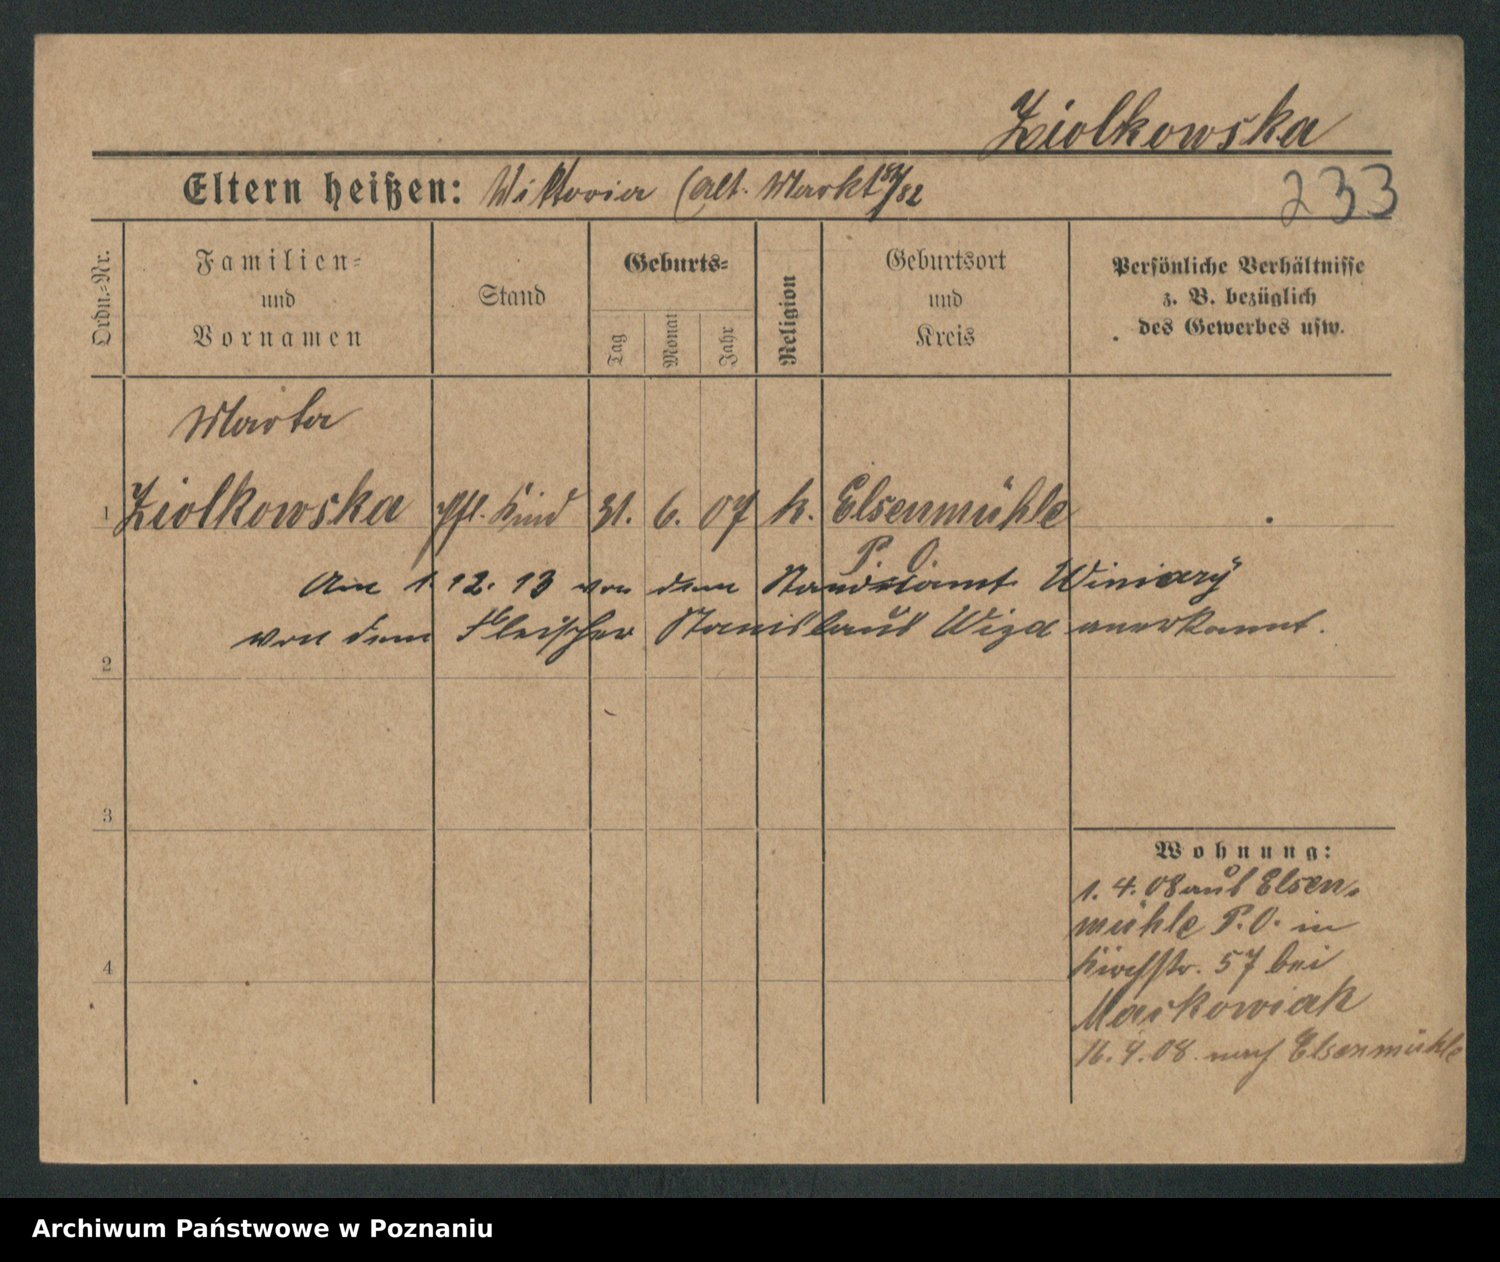 Ziolkowska
Eltern heißen: Wiktoria (Alt. Markt 81/82
233
Ordn.-Nr.
Familien-
und
Vornamen
Stand
Geburts-
Tag
Monat
Jahr
Religion
Geburtsort
und
Kreis
Persönliche Verhältnisse
z. B. bezüglich
des Gewerbes usw.
Marta
1 Ziolkowska Pfl. Kind 31. 6. 07 k. Elsenmühle
P. O.
Am 1.12.13 vor dem Standesamt Winiary
von dem Fleischer Stanislaus Wiza anerkannt.
2
3
4
Wohnung:
1. 4. 08 aus Elsen-
mühle P.O. in
Kirchstr. 57 bei
Maikowiak
16. 4. 08. nach Elsenmühle
Archiwum Państwowe w Poznaniu